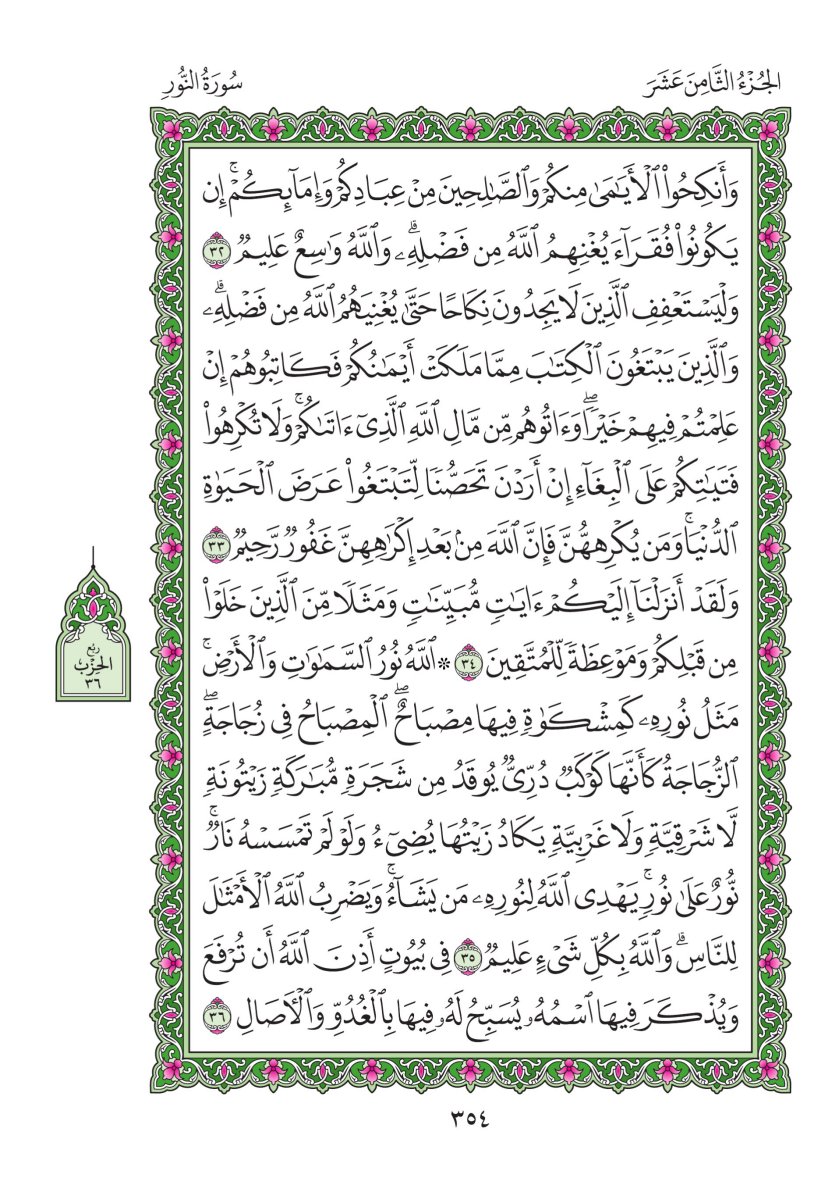 الجُزْءُ الثَّامِنَ عَشَرَ
سُورَةُ النُّورِ
وَأَنكِحُوا۟ ٱلْأَيَـٰمَىٰ مِنكُمْ وَٱلصَّـٰلِحِينَ مِنْ عِبَادِكُمْ وَإِمَآئِكُمْ ۚ إِن
يَكُونُوا۟ فُقَرَآءَ يُغْنِهِمُ ٱللَّهُ مِن فَضْلِهِۦ ۗ وَٱللَّهُ وَٰسِعٌ عَلِيمٌ ٣٢
وَلْيَسْتَعْفِفِ ٱلَّذِينَ لَا يَجِدُونَ نِكَاحًا حَتَّىٰ يُغْنِيَهُمُ ٱللَّهُ مِن فَضْلِهِۦ ۗ
وَٱلَّذِينَ يَبْتَغُونَ ٱلْكِتَـٰبَ مِمَّا مَلَكَتْ أَيْمَـٰنُكُمْ فَكَاتِبُوهُمْ إِنْ
عَلِمْتُمْ فِيهِمْ خَيْرًا ۖ وَءَاتُوهُم مِّن مَّالِ ٱللَّهِ ٱلَّذِىٓ ءَاتَىٰكُمْ ۚ وَلَا تُكْرِهُوا۟
فَتَيَـٰتِكُمْ عَلَى ٱلْبِغَآءِ إِنْ أَرَدْنَ تَحَصُّنًا لِّتَبْتَغُوا۟ عَرَضَ ٱلْحَيَوٰةِ
ٱلدُّنْيَا ۚ وَمَن يُكْرِههُّنَّ فَإِنَّ ٱللَّهَ مِنۢ بَعْدِ إِكْرَٰهِهِنَّ غَفُورٌ رَّحِيمٌ ٣٣
وَلَقَدْ أَنزَلْنَآ إِلَيْكُمْ ءَايَـٰتٍ مُّبَيِّنَـٰتٍ وَمَثَلًا مِّنَ ٱلَّذِينَ خَلَوْا۟
مِن قَبْلِكُمْ وَمَوْعِظَةً لِّلْمُتَّقِينَ ٣٤ ۞ ٱللَّهُ نُورُ ٱلسَّمَـٰوَٰتِ وَٱلْأَرْضِ ۚ
مَثَلُ نُورِهِۦ كَمِشْكَوٰةٍ فِيهَا مِصْبَاحٌ ۖ ٱلْمِصْبَاحُ فِى زُجَاجَةٍ ۖ
ٱلزُّجَاجَةُ كَأَنَّهَا كَوْكَبٌ دُرِّىٌّ يُوقَدُ مِن شَجَرَةٍ مُّبَـٰرَكَةٍ زَيْتُونَةٍ
لَّا شَرْقِيَّةٍ وَلَا غَرْبِيَّةٍ يَكَادُ زَيْتُهَا يُضِىٓءُ وَلَوْ لَمْ تَمْسَسْهُ نَارٌ ۚ
نُّورٌ عَلَىٰ نُورٍ ۗ يَهْدِى ٱللَّهُ لِنُورِهِۦ مَن يَشَآءُ ۚ وَيَضْرِبُ ٱللَّهُ ٱلْأَمْثَـٰلَ
لِلنَّاسِ ۗ وَٱللَّهُ بِكُلِّ شَىْءٍ عَلِيمٌ ٣٥ فِى بُيُوتٍ أَذِنَ ٱللَّهُ أَن تُرْفَعَ
وَيُذْكَرَ فِيهَا ٱسْمُهُۥ يُسَبِّحُ لَهُۥ فِيهَا بِٱلْغُدُوِّ وَٱلْـَٔاصَالِ ٣٦
رُبْعُ
الحِزْبِ
٣٦
٣٥٤